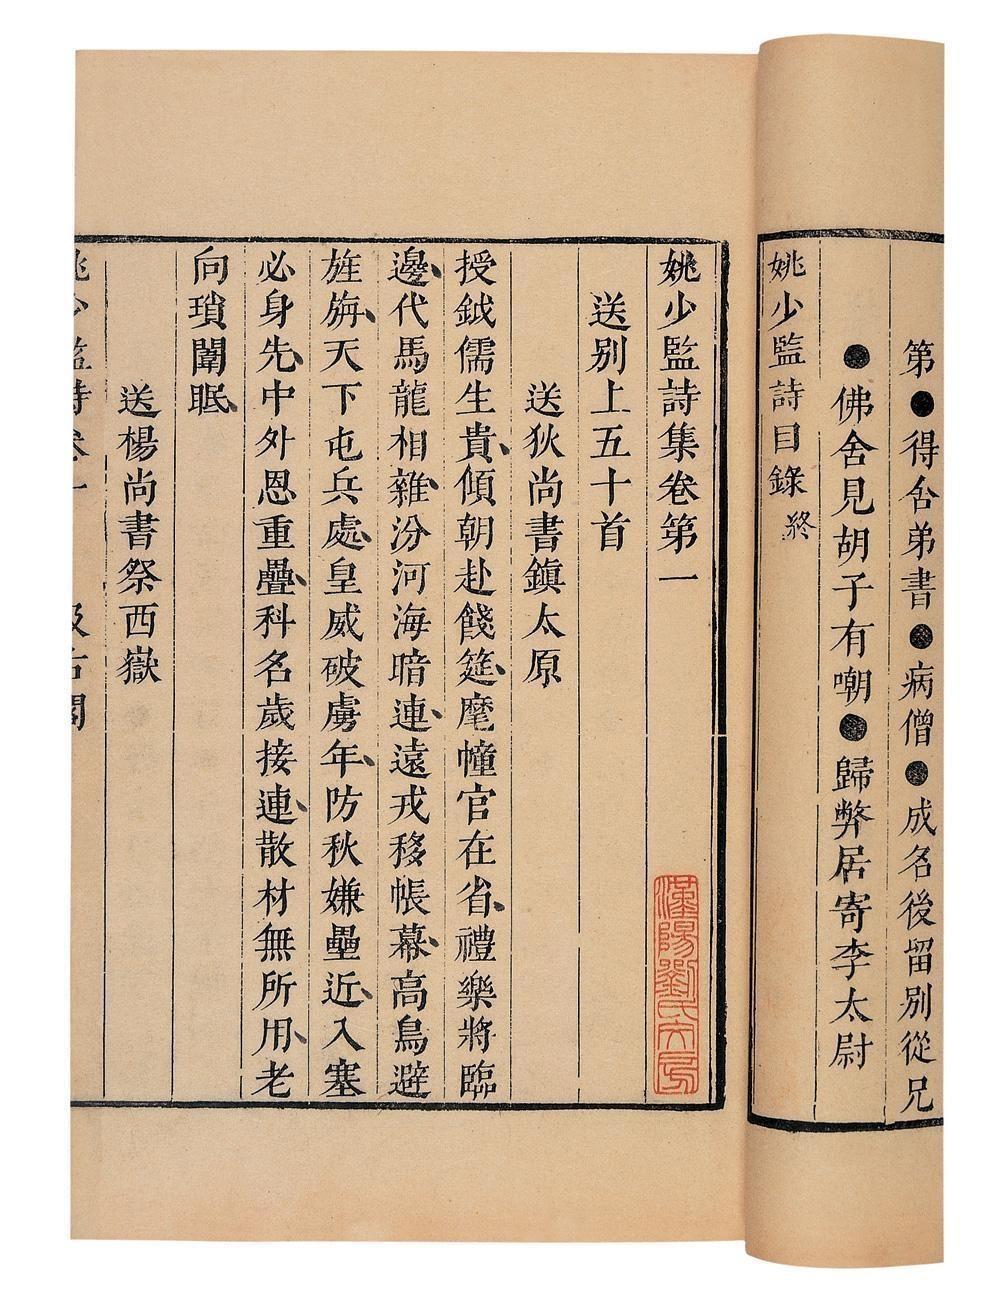 第●得舍弟書●病僧●成名後留別從兄
●佛舍見胡子有嘲●歸弊居寄李太尉
姚少監詩目錄終
姚少監詩集卷第一
送別上五十首
送狄尚書鎮太原
授鉞儒生貴、傾朝赴餞筵、麾幢官在省、禮樂將臨
邊、代馬龍相雜、汾河海暗連、遠戎移帳幕、高鳥避
旌旃、天下屯兵處、皇威破虜年、防秋嫌壘近、入塞
必身先、中外恩重疊、科名歲接連、散材無所用、老
向瑣闈眠、
送楊尚書祭西嶽
姚少監詩卷一
汲古閣
漢陽劉氏文房